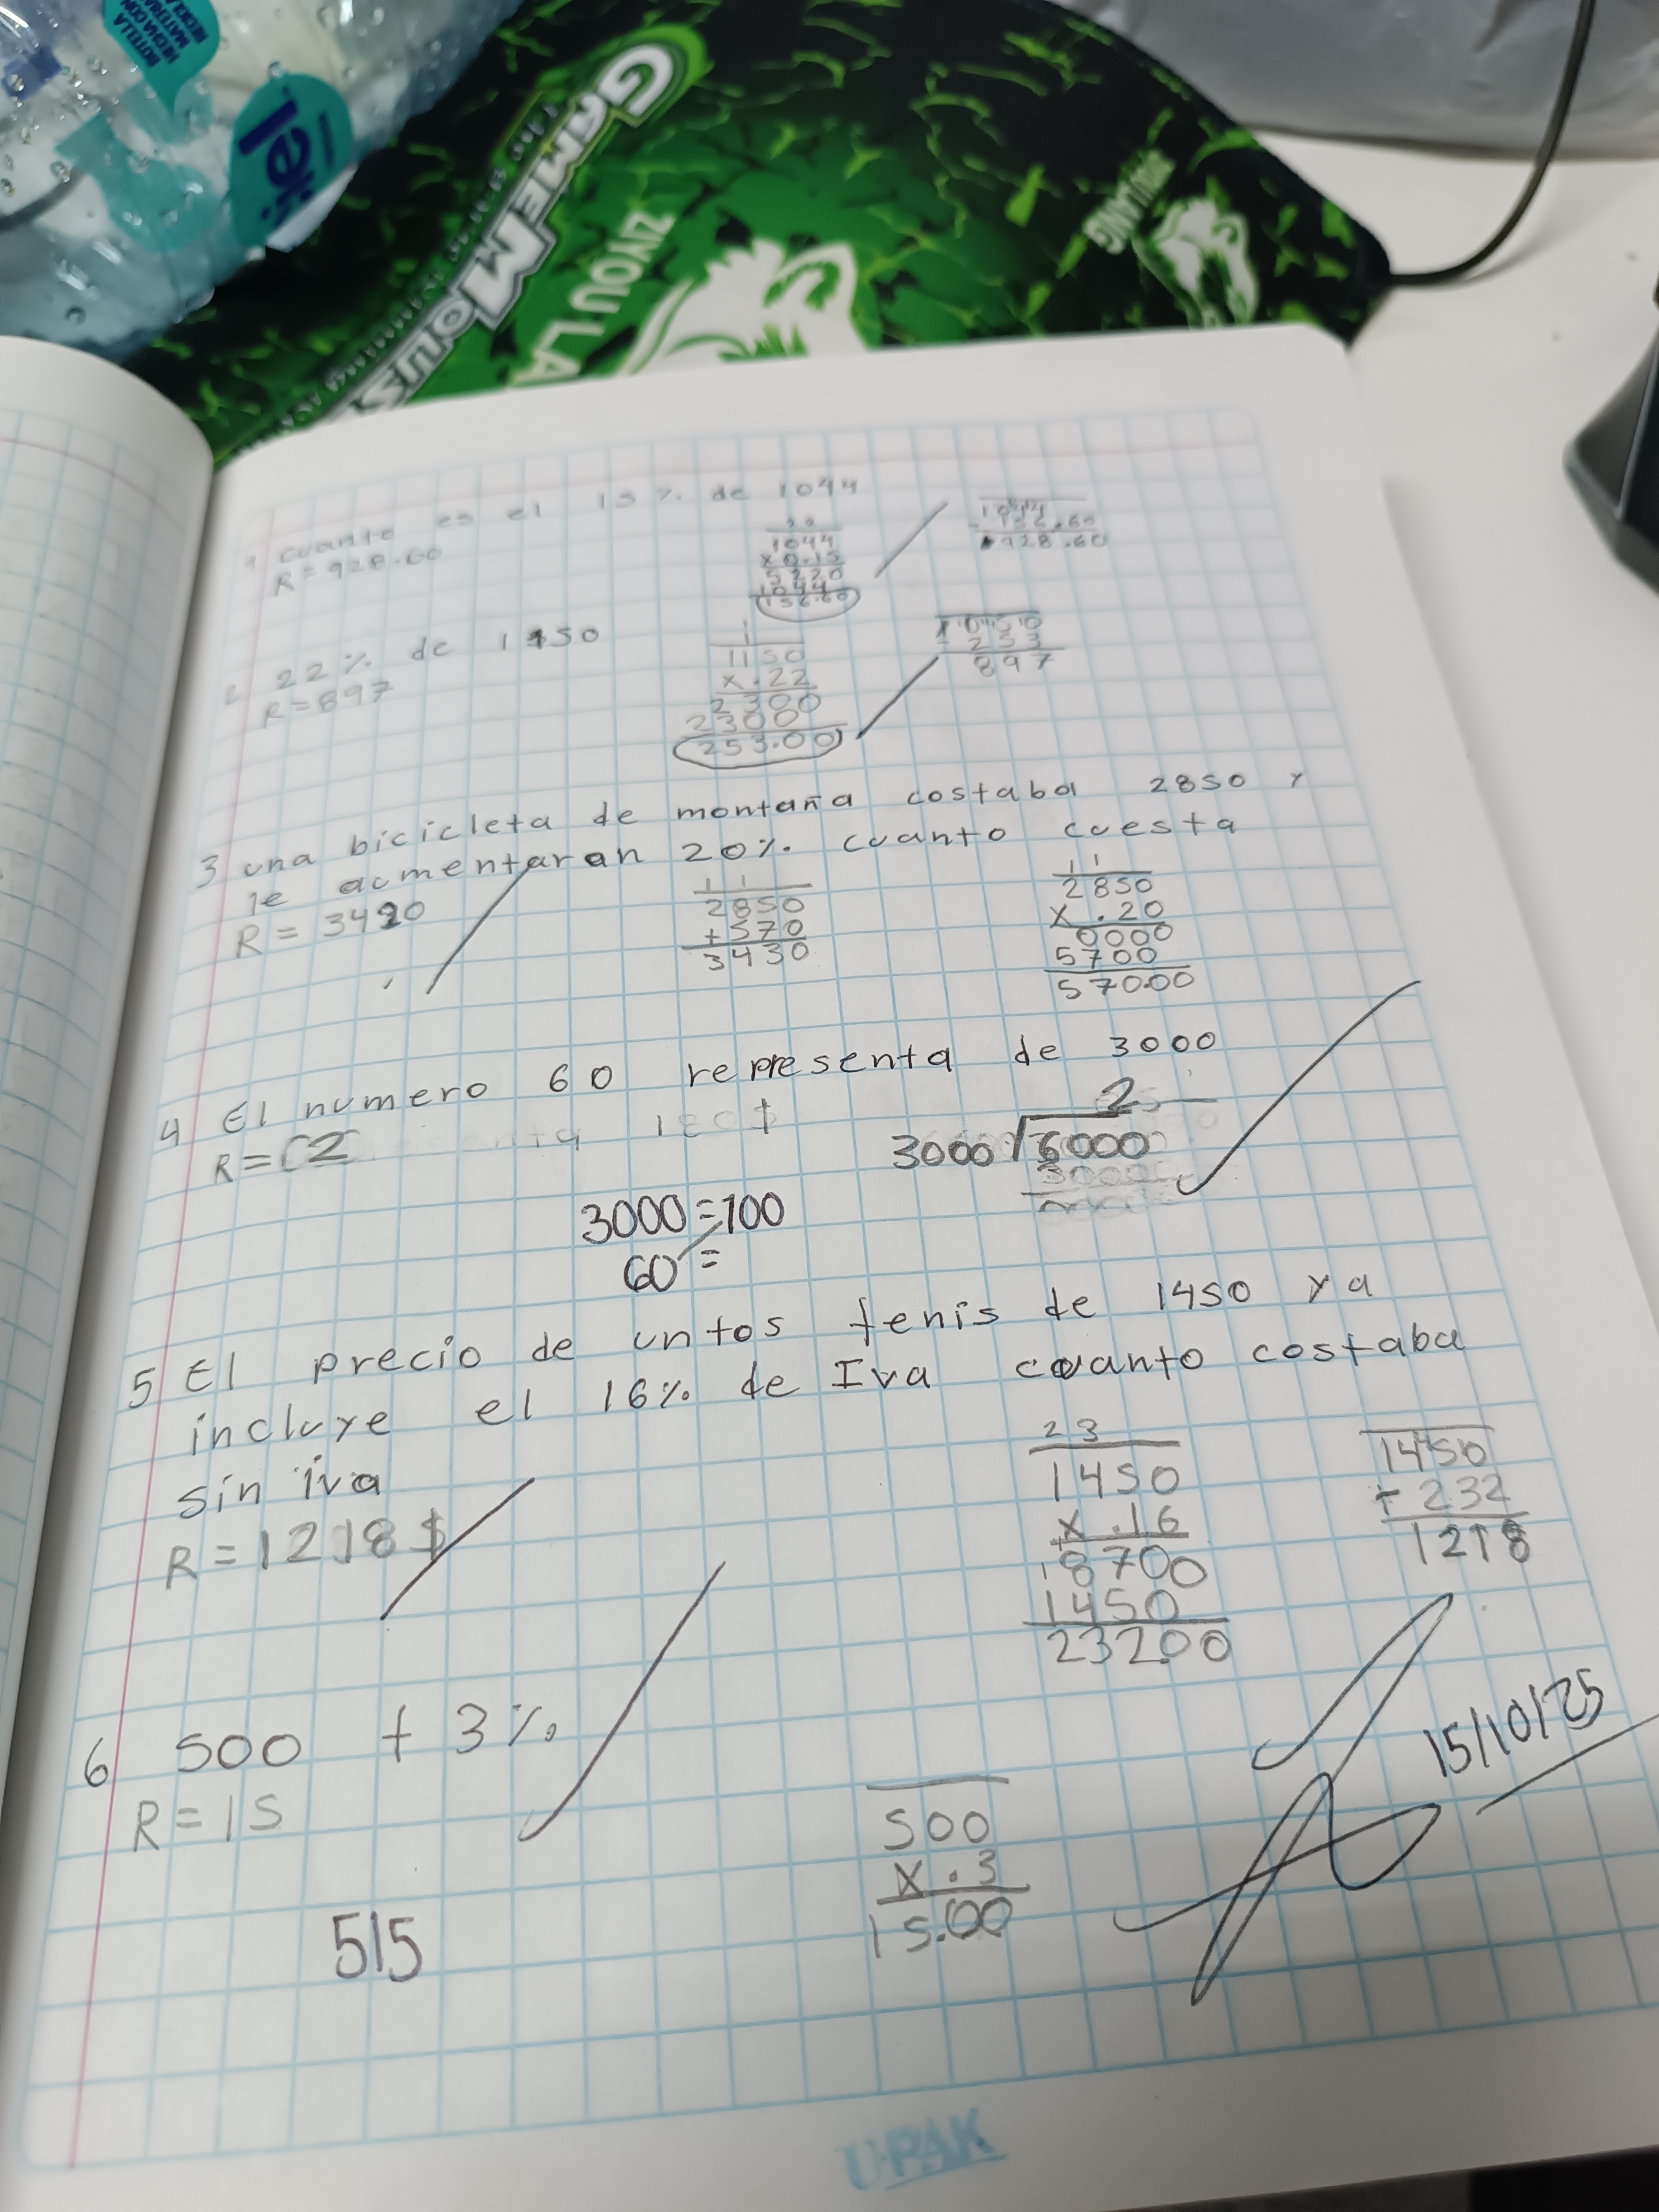 BOTELLA
HECHA CON
iel
GAMEMOUS
ZIYOU LA
ZIYOULANG
1 cuanto es el 15% de 1044
R=928.60
1044
x 0.15
5220
1044
156.60
1044
- 156.60
928.60
2 22% de 1150
R=897
1
1150
x .22
2300
2300
253.00
1150
- 253
897
3 una bicicleta de montaña costaba 2850 y
le acmentaran 20% cuanto cuesta
R = 3420
1 1
2850
+570
3430
1 1
2850
x .20
0000
5700
570.00
4 El numero 60 representa de 3000
R= 2
2
3000 6000
3000=100
60 =
5 El precio de untos tenis de 1450 ya
incluye el 16% de Iva cuanto costaba
sin iva
R=1218$
2 3
1450
x .16
8700
1450
232.00
1450
- 232
1218
6 500 + 3%
R=15
515
500
x .3
15.00
15/10/25
U-PAK